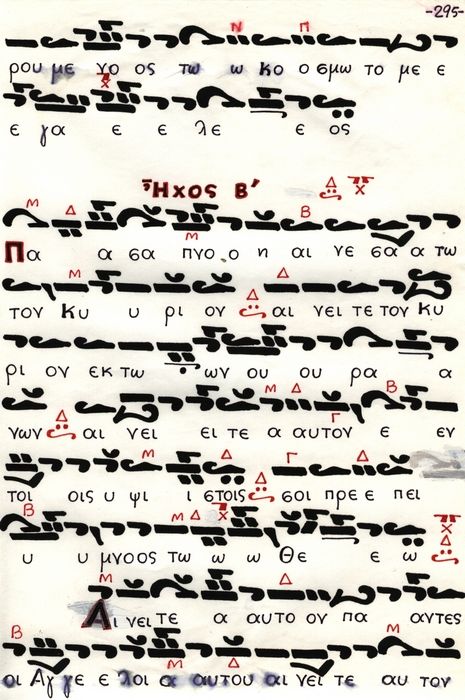 -295-
Ν Π
ρου με γο ος τω ω κο ο σμω το με ε
ε γα ε ε λε ε ος
Ἦχος Β΄ Δ χ
Μ Δ Β
Πα α σα πνο ο η αι νε σα α τω
Μ
Μ Δ
τον Κυ υ ρι ον Δ αι νει τε τον Κυ
ρι ον εκ τω ων ου ου ρα α
Μ Δ Β
νων Δ αι νει ει τε α αυτον ε εν
Γ
Μ Δ Γ Δ
τοι οις υ ψι ι στοις Δ σοι πρε ε πει
Β Μ Δ χ χ
υ υ μνοος τω ω ω Θε ε ω Δ
Μ Δ
Αι νει τε α αυτο ον πα αντες
Β Μ
οι Αγ γε ε λοι α αυτου αι νει τε αυ τον
Μ Δ